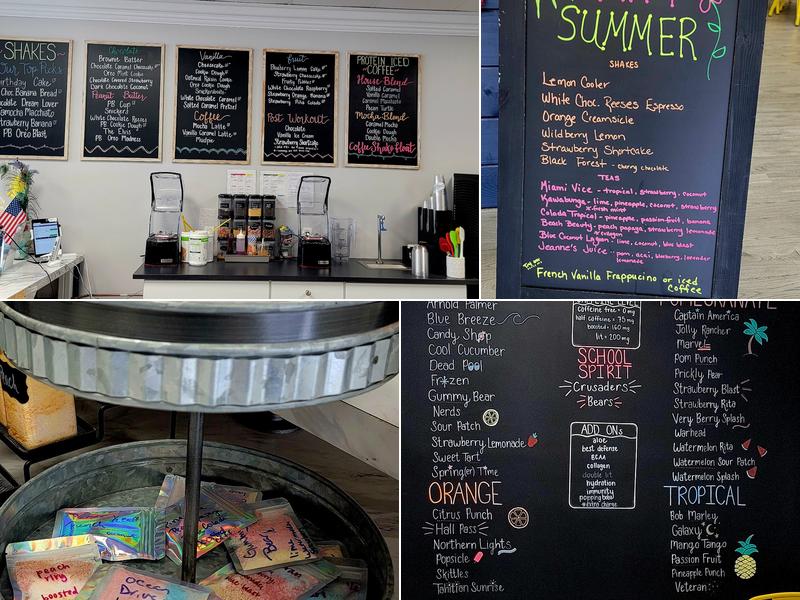 SHAKES
Our Top Picks
Birthday Cake
Choc Banana Bread
Chocolate Dream Lover
Samoa Macchiato
Strawberry Banana
Snickers
PB Oreo Blast
Chocolate
Brownie Batter
Chocolate Caramel Cheesecake
Oreo Mint Cookie
Chocolate Covered Strawberry
Dark Chocolate Coconut
Peanut Butter
PB Cup
Snickers
White Chocolate Reeses
PB Cookie Dough
The Elvis
PB Oreo Madness
Vanilla
Cheesecake
Cookie Dough
Oatmeal Raisin Cookie
Oreo Cookie Dough
Snickerdoodle
White Chocolate Caramel
Salted Caramel Pretzel
Coffee
Mocha Latte
Vanilla Caramel Latte
Mudpie
Fruit
Blueberry Lemon Cake
Strawberry Cheesecake
Fruity Flakes
White Chocolate Raspberry
Strawberry Orange Banana
Strawberry Piña Colada
Post Workout
Chocolate
Vanilla Ice Cream
Strawberry Shortcake
PROTEIN ICED
COFFEE
House Blend
Salted Caramel
Vanilla Caramel
Caramel Macchiato
Pecan Turtle
Mocha Blend
Caramel Mocha
Cookie Dough
Double Mocha
Coffee Shake Float
SUMMER
SHAKES
Lemon Cooler
White Choc. Reeses Espresso
Orange Creamsicle
Wildberry Lemon
Strawberry Shortcake
Black Forest - cherry chocolate
TEAS
Miami Vice - tropical, strawberry, coconut
Kawabunga - lime, pineapple, coconut, strawberry
*fresh mint
Colada Tropical - pineapple, passionfruit, banana
Beach Beauty - peach papaya, strawberry lemonade
*collagen
Blue Coconut Lagoon - lime, coconut, blue blast
Jeanne's Juice - pom, acai, blueberry, lavender
lemonade
French Vanilla Frappucino or iced
Coffee
Peach
ring
boosted
Ocean
Drive
Arnold Palmer
Blue Breeze
Candy Shop
Cool Cucumber
Dead Pool
Fr*zen
Gummy Bear
Nerds
Sour Patch
Strawberry Lemonade
Sweet Tart
Spring(er) Time
ORANGE
Citrus Punch
Hall Pass
Northern Lights
Popsicle
Skittles
Tahitian Sunrise
caffeine free = 0 mg
half caffeine = 75 mg
boosted = 160 mg
lit = 200 mg
SCHOOL
SPIRIT
Crusaders
Bears
ADD ONs
aloe
best defense
BCAA
collagen
double lit
hydration
immunity
popping boba
*extra charge
POMEGRANATE
Captain America
Jolly Rancher
Marvel
Pom Punch
Prickly Pear
Strawberry Blast
Strawberry Rita
Very Berry Splash
Warhead
Watermelon Rita
Watermelon Sour Patch
Watermelon Splash
TROPICAL
Bob Marley
Galaxy
Mango Tango
Passion Fruit
Pineapple Punch
Veteran